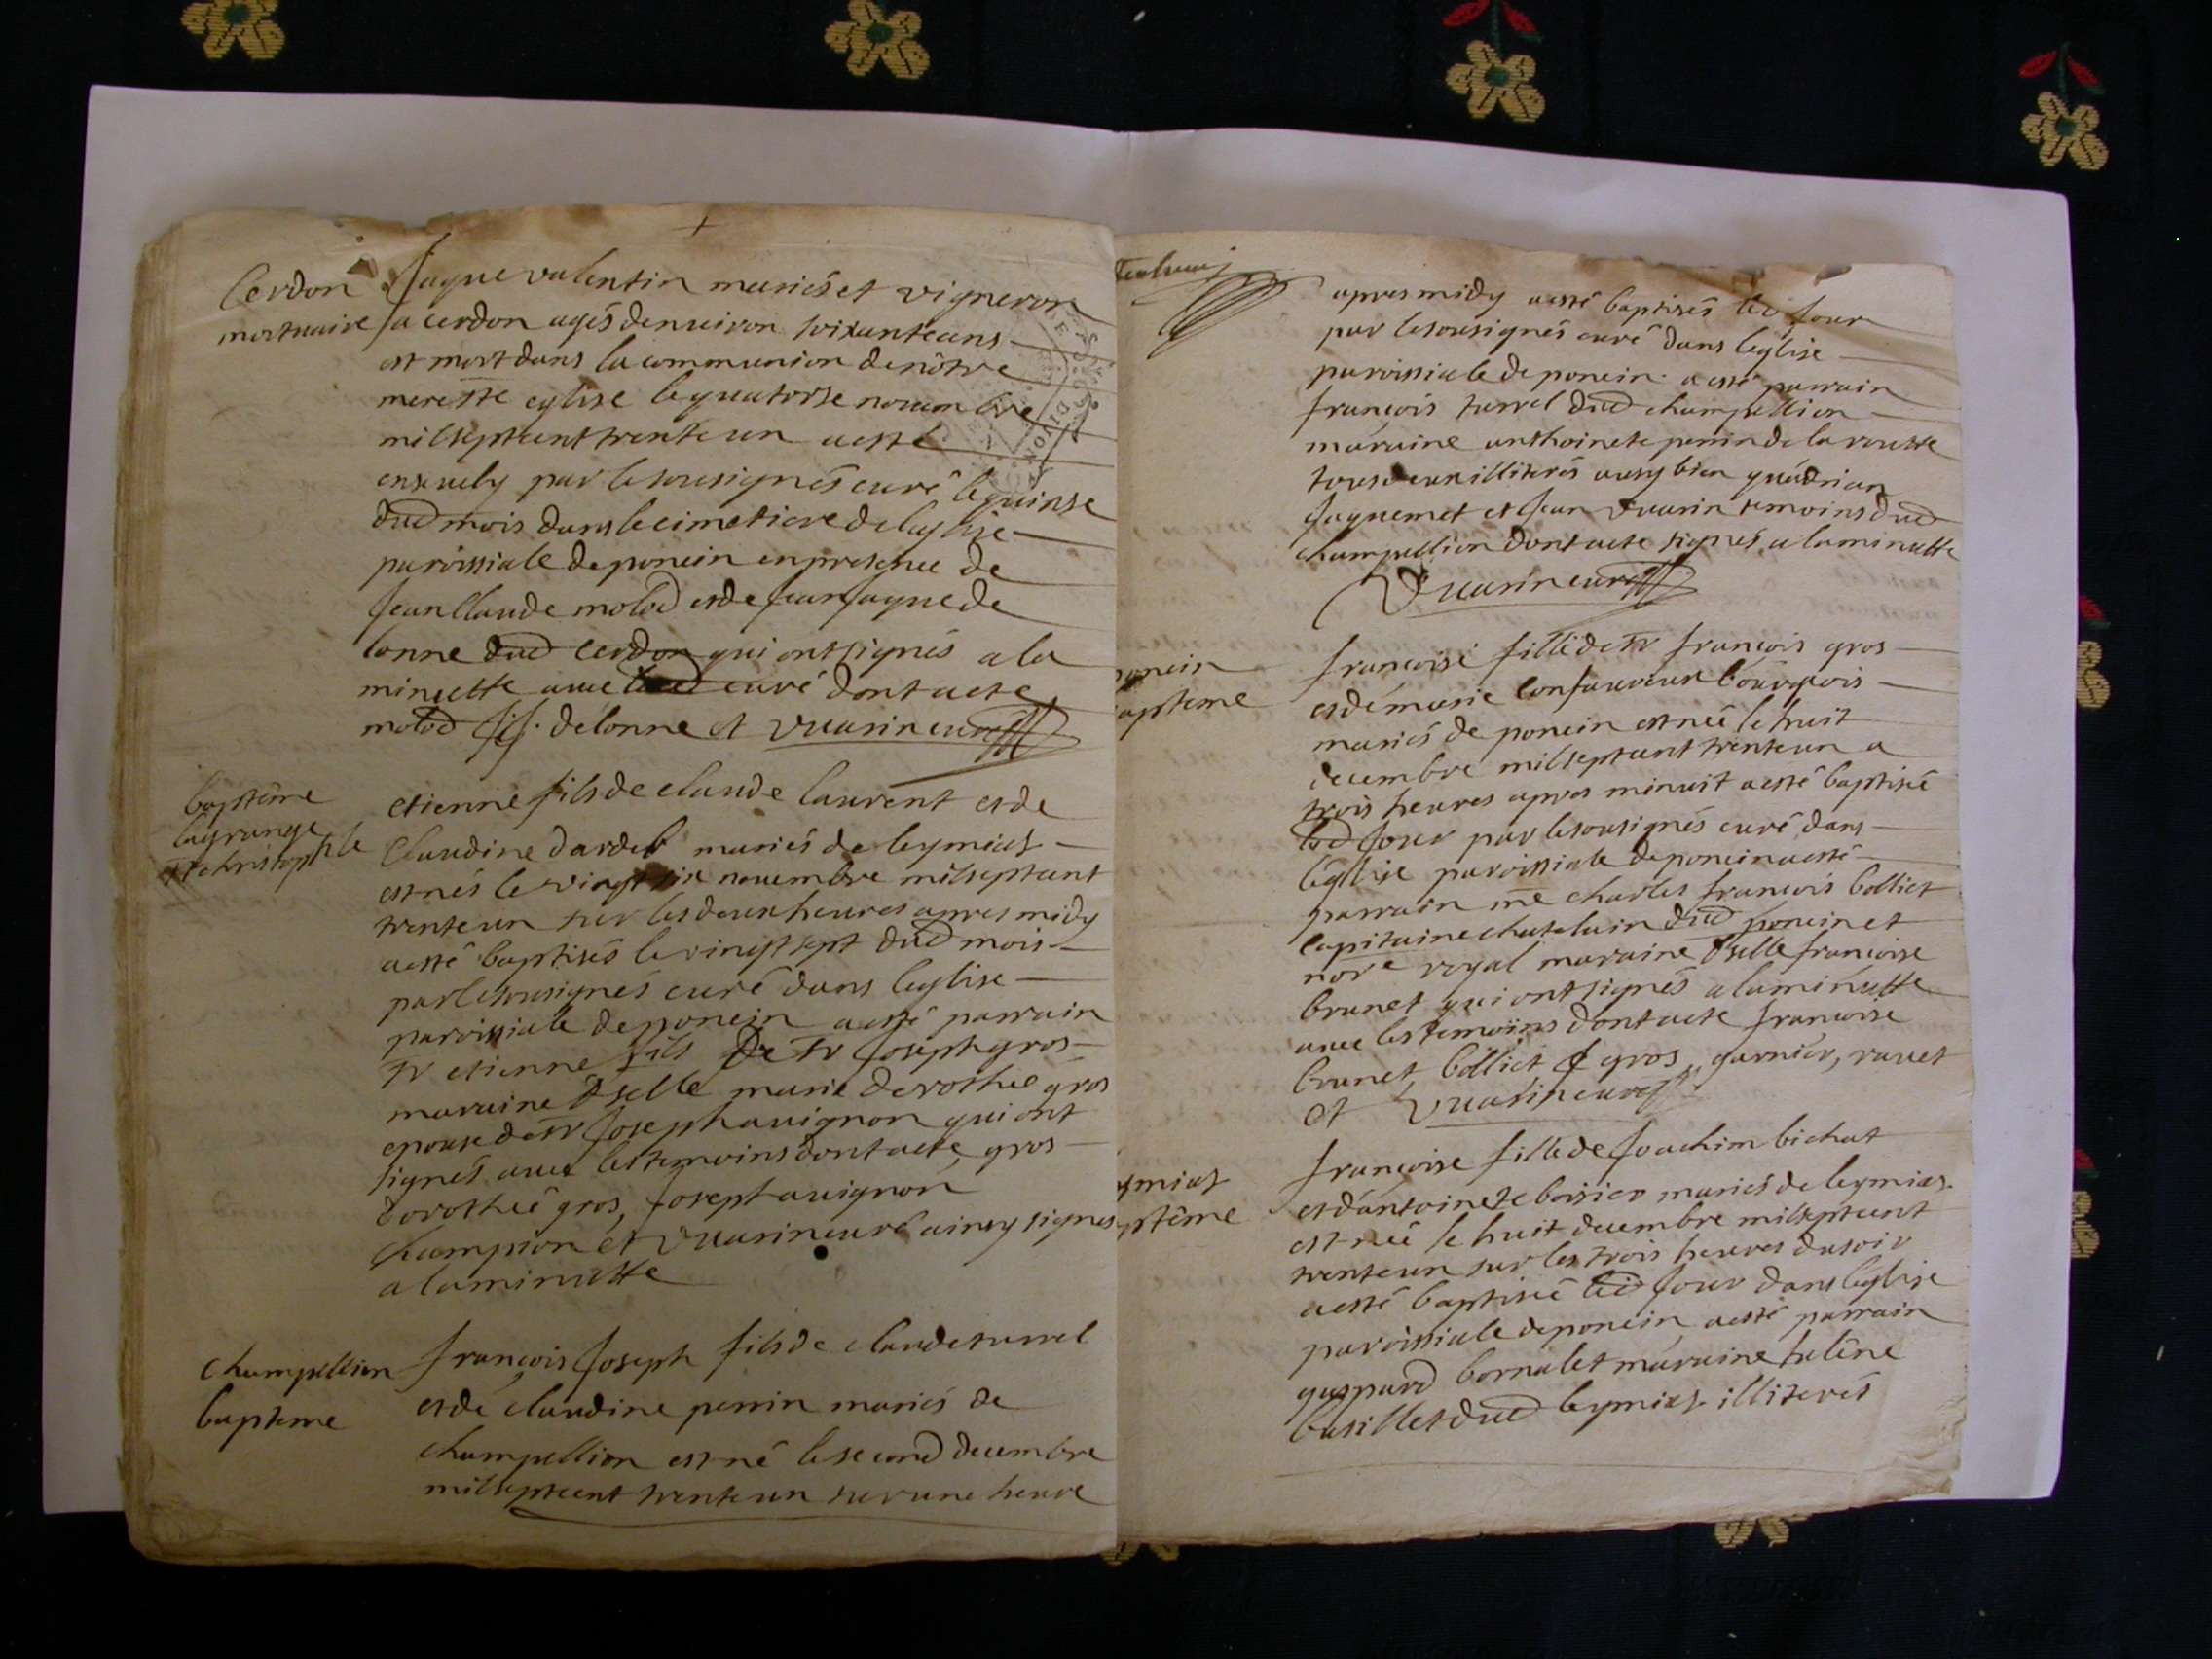 Cerdon
mortuaire
Jaque valentin mariés et vigneron
a cerdon agés denuiron soixante ans
est mort dans la communion de nôtre
mere ste eglise le quatorse nouembre
mil sept cent trente un a esté
enseuely par le sousignés curé le quinse
dud mois dans le cimetiere de leglise
paroissiale de poncin en presence de
Jean Claude molod et de Jean Jaque de
lonne dud cerdon qui ont signés a la
minutte auec led curé dont acte
molod J:J: délonne et vuarin curé
baptême
lagrange
st christophle
etienne fils de claude laurent et de
Claudine dardel mariés de leymiat
est nés le vingt six nouembre mil sept cent
trente un sur les deux heures apres midy
a esté baptisés le vingt sept dud mois
par le sousignés curé dans leglise
paroissiale de poncin a esté parrain
sr etienne fils de sr Joseph gros
maraine dselle marie dorothée gros
epouse de sr Joseph auignon qui ont
signés auec les temoins dont acte, gros
dorothée gros, Joseph auignon
champion et vuarin curé ainsy signés
a la minutte
champellion
bapteme
françois Joseph fils de claude turrel
et de claudine perrin mariés de
champellion est né le second decembre
mil sept cent trente un sur une heure
apres midy a esté baptisés led Jour
par le sousignés curé dans leglise
paroissiale de poncin a esté parrain
françois turrel dud champellion
maraine anthoinete perrin de la rousse
tous deux illiterés ausy bien qu'adrian
Jaquemet et Jean vuarin temoins dud
champellion dont acte signés a la minutte
Vuarin curé
poncin
apteme
françoise fille de sr françois gros
et de marie bourgeois
mariés de poncin est née le huit
decembre mil sept cent trente un a
trois heures apres minuit a esté baptisée
led Jour par le sousignés curé dans
leglise paroissiale de poncin a esté
parrain me charles françois bolliet
capitaine chatelain dud poncin et
nore royal maraine dselle françoise
brunet qui ont signés a la minutte
auec les temoins dont acte françoise
brunet, bolliet f gros, garnier, rauet
et vuarin curé
ymiat
ptême
françoise fille de Joachim bichat
et d'antoinete boisier mariés de leymiat
est née le huit decembre mil sept cent
trente un sur les trois heures du soir
a esté baptisée led Jour dans leglise
paroissiale de poncin, a esté parrain
gaspard bornalet maraine helêne
basillet dud leymiat illiterés